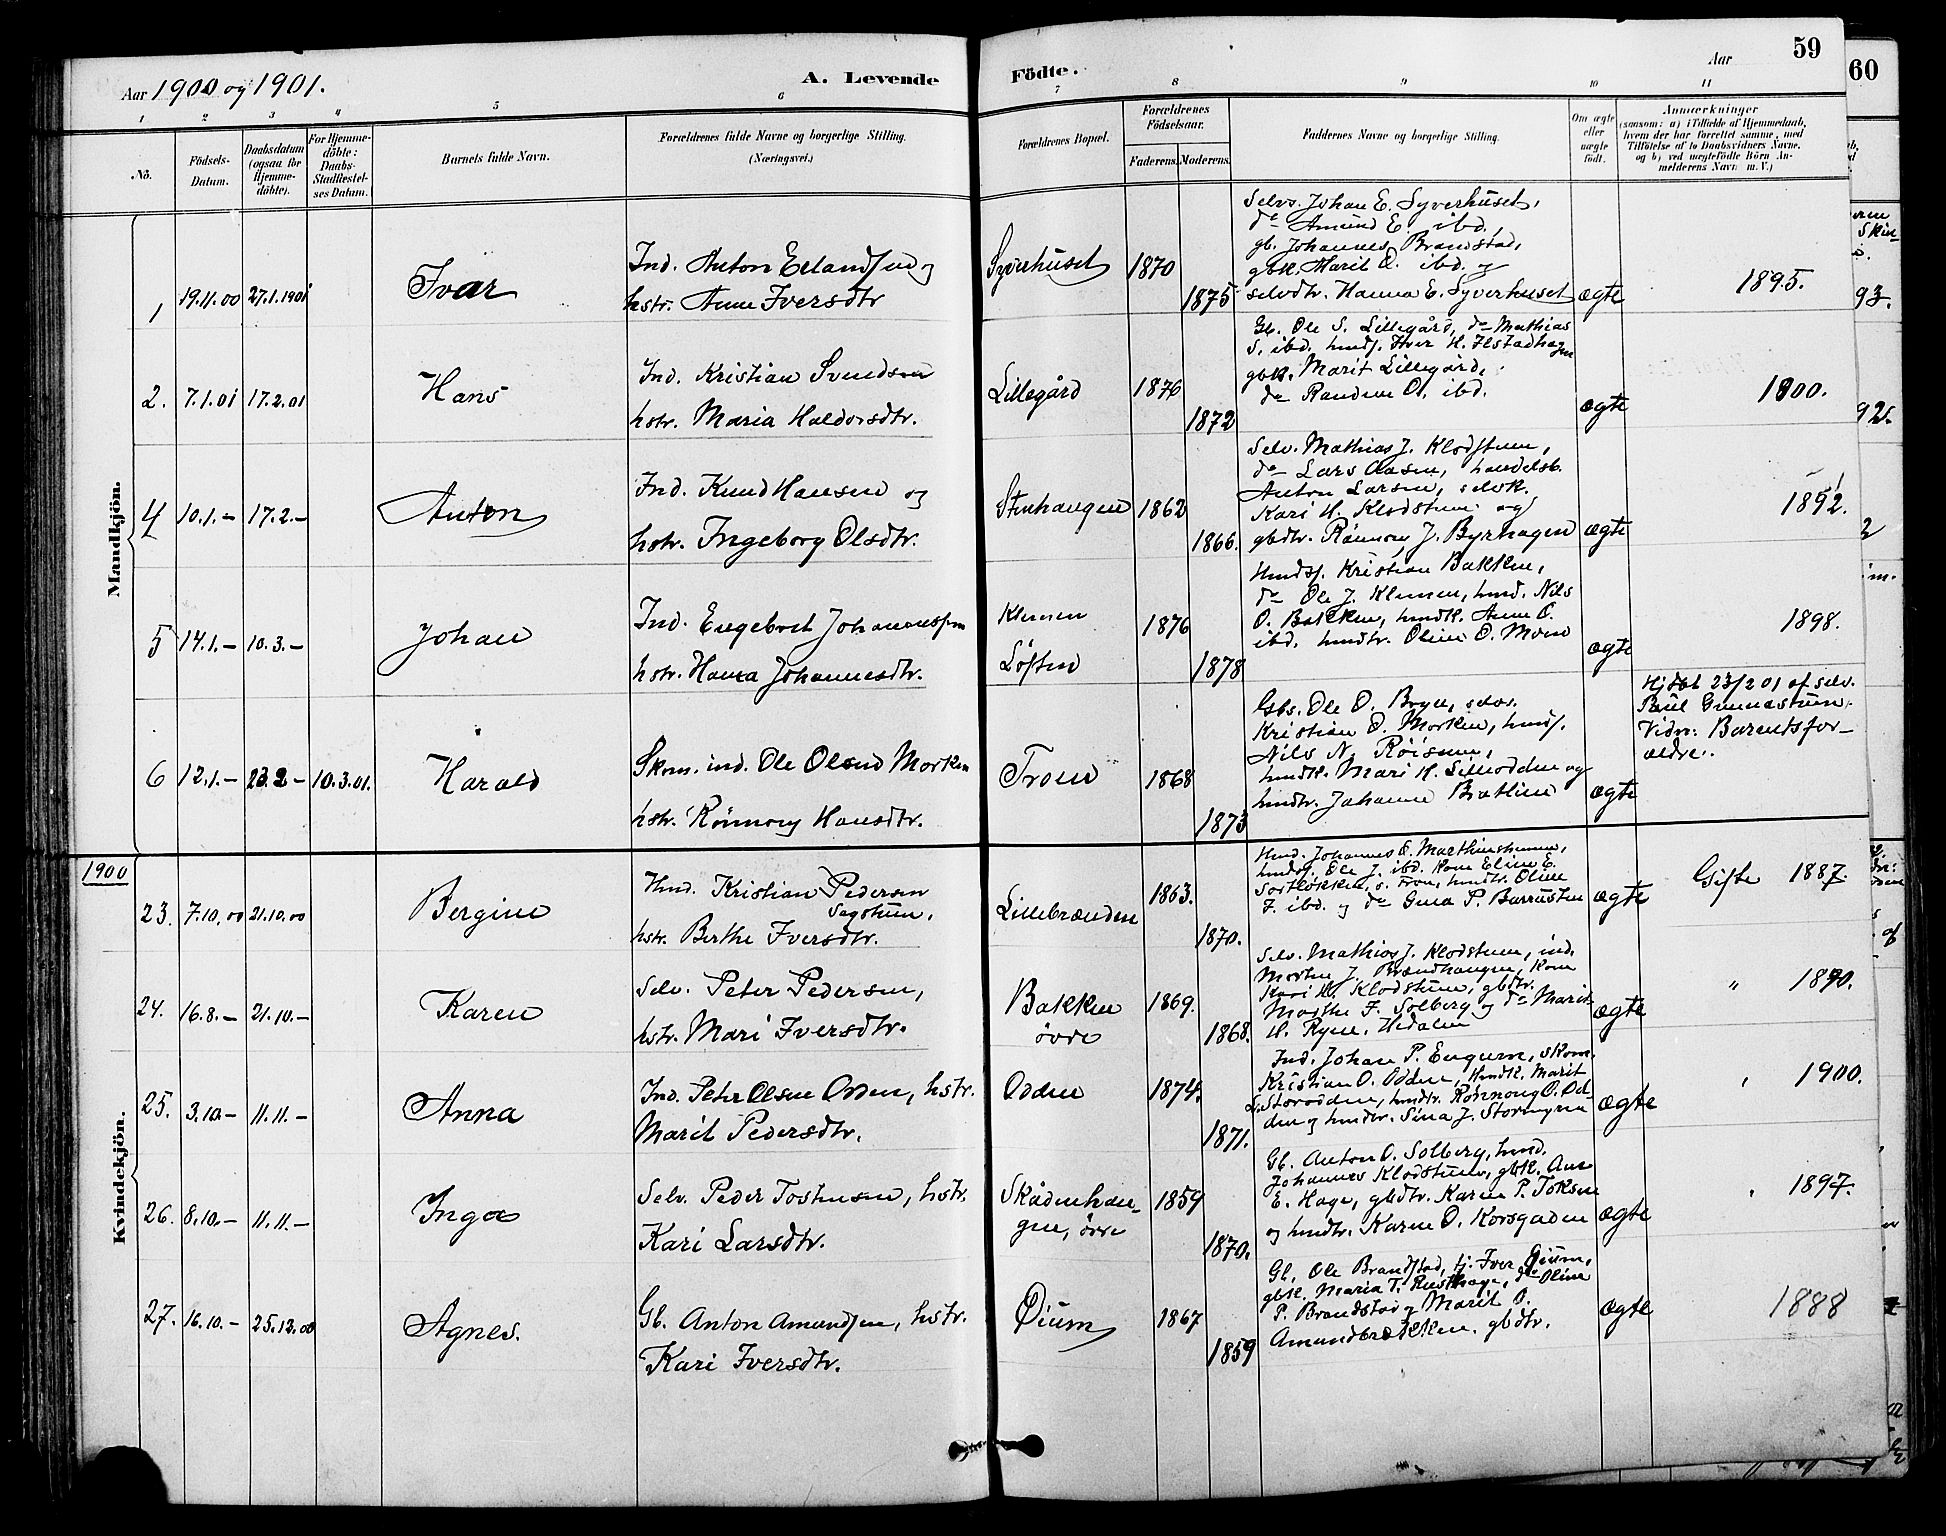 Aar 1900 og 1901.
A. Levende
Födte.
Aar
59
60
1
2
3
4
5
6
7
8
9
10
11
No.
Födsels-
Datum.
Daabsdatum
(ogsaa for
Hjemme-
döbte).
For Hjemme-
döbte:
Daabs-
Stadfæstel-
ses Datum.
Barnets fulde Navn.
Forældrenes fulde Navne og borgerlige Stilling.
(Næringsvei.)
Forældrenes Bopæl.
Forældrenes
Födselsaar.
Faderens.
Moderens.
Faddernes Navne og borgerlige Stilling.
Om ægte
eller
uægte
födt.
Anmærkninger
(saasom: a) i Tilfælde af Hjemmedaab,
hvem der har forrettet samme, med
Tilföielse af to Daabsvidners Navne,
og b) ved uægtefödte Börn An-
melderens Navn m. V.)
Mandkjön.
1
19.11.00
27.1.1901
Ivar
Ind. Anton Erlandsen og
hstr. Anne Iversdtr
Syverhuset
1870
1875
Selvs. Johan E. Syverhuset,
do Amund E. ibd.
gb. Johannes Brandstad,
gbk. Marit O. ibd. og
selvdtr. Hanna E. Syverhuset
ægte
1895.
2.
7.1.01
17.2.01
Hans
Ind. Kristian Svendsen
hstr. Maria Haldorsdtr.
Lillegård
1876
1872
Gb. Ole S. Lillegård, do Mathias
S. ibd. hmds. Iver H. Ilstadhagen
gbk. Marit Lillegård,
do Randine O. ibd.
ægte
1900.
4
10.1.–
17.2.–
Anton
Ind. Knud Hansen og
hstr. Ingeborg Olsdtr.
Stenhaugen
1862
1866.
Selv. Mathias J. Klodstuen,
do Lars Aasen, handelsb.
Anton Larsen, selvk.
Kari H. Klodstuen og
gbdtr. Rønnoug J. Byrhagen
ægte
1892.
5
14.1.–
10.3.–
Johan
Ind. Engebret Johannessen
hstr. Hanna Johannesdtr.
Klemen
Løften
1876
1878
Hmds. Kristian Bakken,
do Ole J. Klemen, hmd. Nils
O. Bakken, hmdk. Anne O.
ibd. hmdtr. Oline O. Moen
ægte
1898.
6
12.1.–
23.2–
10.3.01.
Harald
Skom. ind. Ole Olsen Morken
hstr. Rønnoug Hansdtr.
Troen
1868
1873
Gbs. Ole O. Bryn, selvs.
Kristian O. Morken, hmds.
Nils N. Røisum,
hmdk. Mari H. Lilleodden og
hmdtr. Johanne Bratlien
ægte
Hjdbt 23/2 01 af selv.
Paul Gunnastuen.
Vidn: Barnetsfor-
ældre.
1900
Kvindekjön.
23.
7.10.00
21.10.00
Bergine
Hmd. Kristian Pedersen
Sagstuen,
hstr. Berthe Iversdtr.
Lillebrænden
1863.
1870.
Hmd. Johannes O. Marthinshuen,
hmds. Ole J. ibd. Kone Eline E.
Sortløkken, s. Fron, hmdtr. Oline
F. ibd. og do Gina P. Barrusten
ægte
Gifte 1887.
24.
16.8.–
21.10.–
Karen
Selv. Peter Pedersen,
hstr. Mari Iversdtr.
Bakken
övre
1869.
1868.
Selv. Mathias J. Klodstuen, ind.
Morten J. Brændhaugen, Kone
Kari H. Klodstuen, gbdtr.
Marthe F. Solberg og do Marit
H. Ryen. Hedalen
ægte
" 1890.
25.
3.10–
11.11.–
Anna
Ind. Peter Olsen Odden, hstr.
Marit Pedersdtr.
Odden
1874.
1871.
Ind. Johan P. Engum, skom.
Kristian O. Odden, Hmdk. Marit
L. Storodden, hmdtr. Rønnoug O. Od-
den og hmdtr. Sina J. Stormyren
ægte
" 1900.
26.
8.10.–
11.11.–
Inga
Selv. Peder Tostensen, hstr.
Kari Larsdtr.
Skådenhau-
gen, övre
1859
1870.
Gb. Anton O. Solberg, hmd.
Johannes Klodstuen, gbk. Ane
E. Hage, gbdtr. Karen P. Toksen
og hmdtr. Karen O. Korsgaden
ægte
" 1897.
27.
16.10.–
25.12.00
Agnes.
Gb. Anton Amundsen, hstr.
Kari Iversdtr.
Øium
1867
1859
Gb. Ole Brandstad, tj. Iver Øium,
gbk. Maria T. Rusthage, do Oline
P. Brandstad og Marit O.
Amundbrækken. gbdtr.
ægte
1888